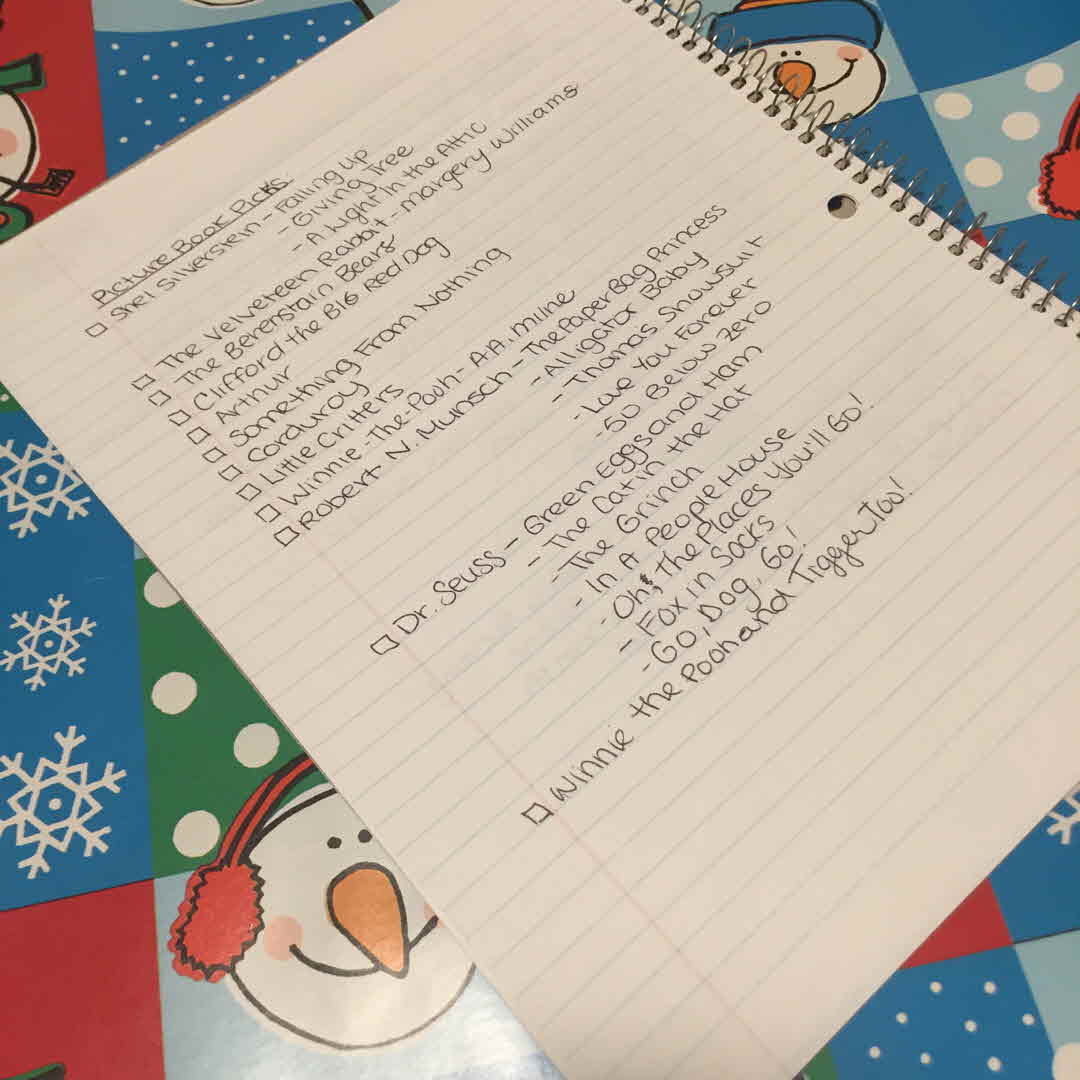 Picture Book Picks
□ Shel Silverstein - Falling Up
- Giving Tree
- A Light In the Attic
□ The Velveteen Rabbit - Margery Williams
□ The Berenstain Bears
□ Clifford the BIG Red Dog
□ Arthur
□ Something From Nothing
□ Corduroy
□ Little Critters
□ Winnie-The-Pooh - A.A. Milne
□ Robert N. Munsch - The Paper Bag Princess
- Alligator Baby
- Thomas Snowsuit
- Love You Forever
- 50 Below Zero
□ Dr. Seuss - Green Eggs and Ham
- The Cat in the Hat
- The Grinch
- In A People House
- Oh, The Places You'll Go!
- Fox in Socks
- GO, Dog, Go!
□ Winnie the Pooh and Tigger Too!